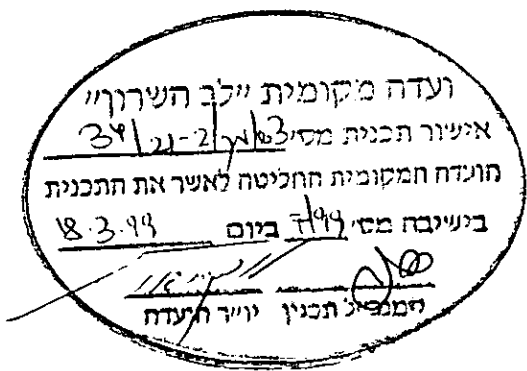 ועדה מקומית "לב השרון"
אישור תכנית מס'
הועדה המקומית החליטה לאשר את התכנית
בישיבה מס' 7/99 ביום 18.3.99
תכנון יו"ר הועדה